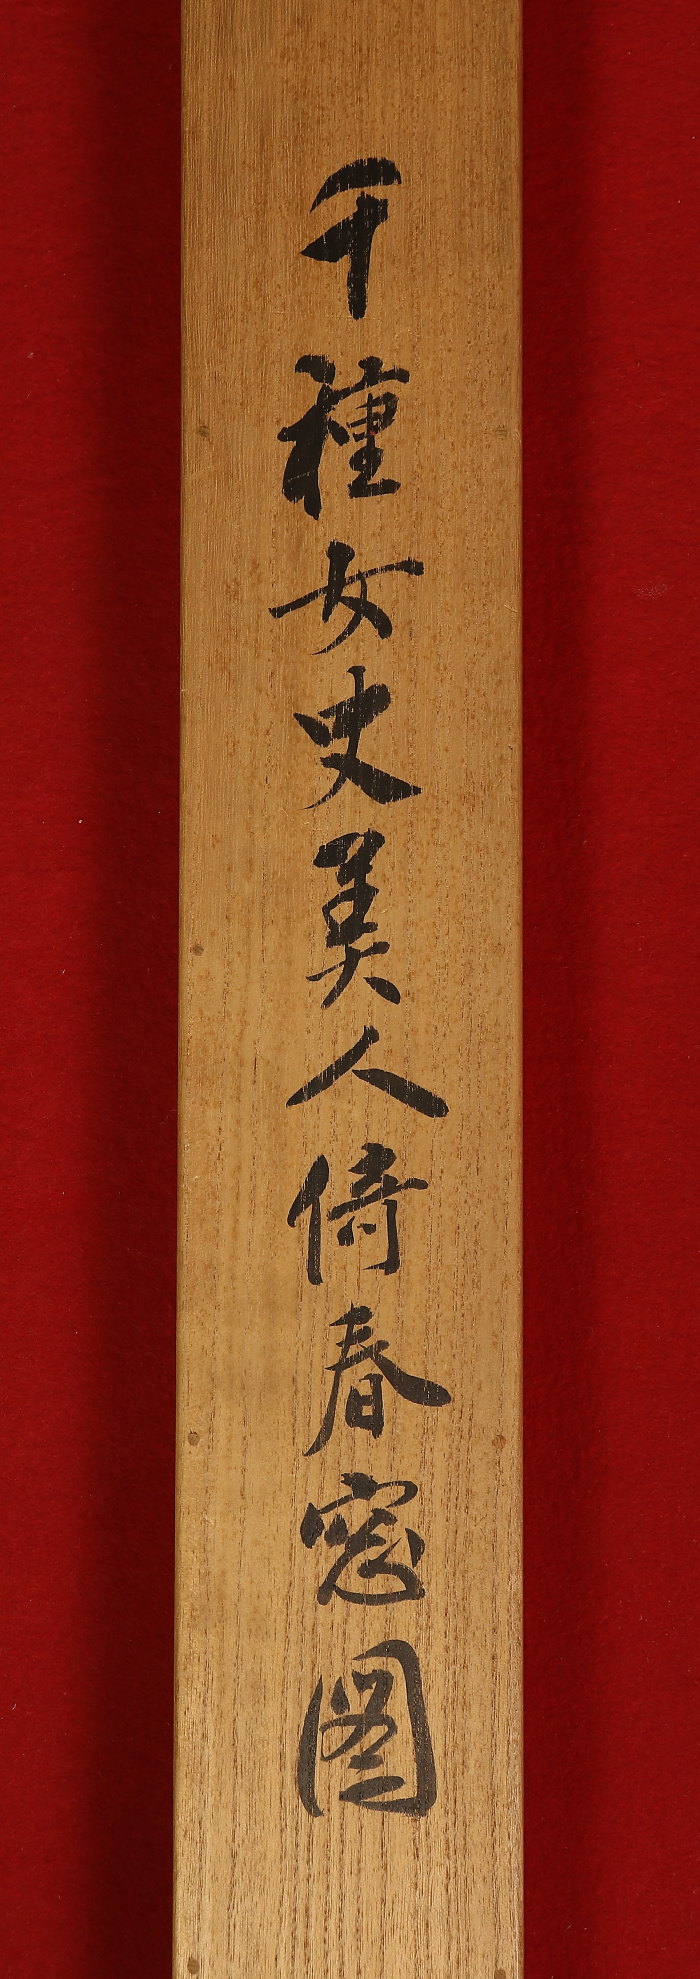 千種女史美人倚春窓図